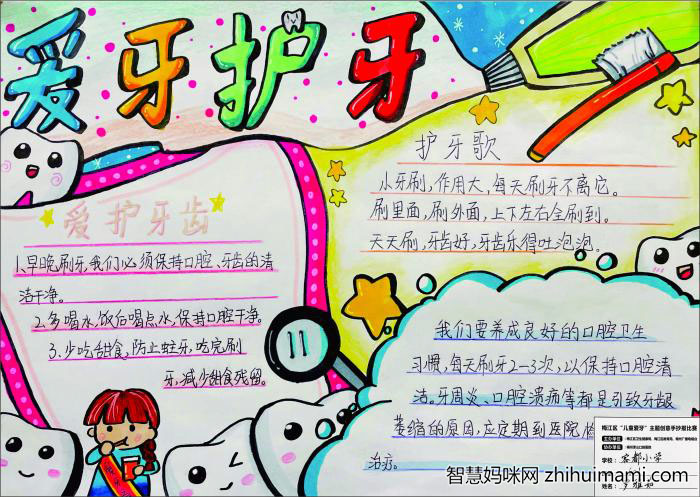 爱牙护牙
护牙歌
小牙刷,作用大,每天刷牙不离它。
刷里面,刷外面,上下左右全刷到。
天天刷,牙齿好,牙齿乐得吐泡泡。
爱护牙齿
1.早晚刷牙,我们必须保持口腔、牙齿的清
洁干净。
2.多喝水,饭后喝点水,保持口腔干净。
3.少吃甜食,防止蛀牙,吃完刷
牙,减少甜食残留。
我们要养成良好的口腔卫生
习惯,每天刷牙2-3次,以保持口腔清
洁。牙周炎、口腔溃疡等都是引致牙龈
萎缩的原因,应定期到医院检
治疗。
梅江区“儿童爱牙”主题创意手抄报比赛
主办单位
协办单位
学校:客都小学
姓名:
智慧妈咪网 zhihuimami.com